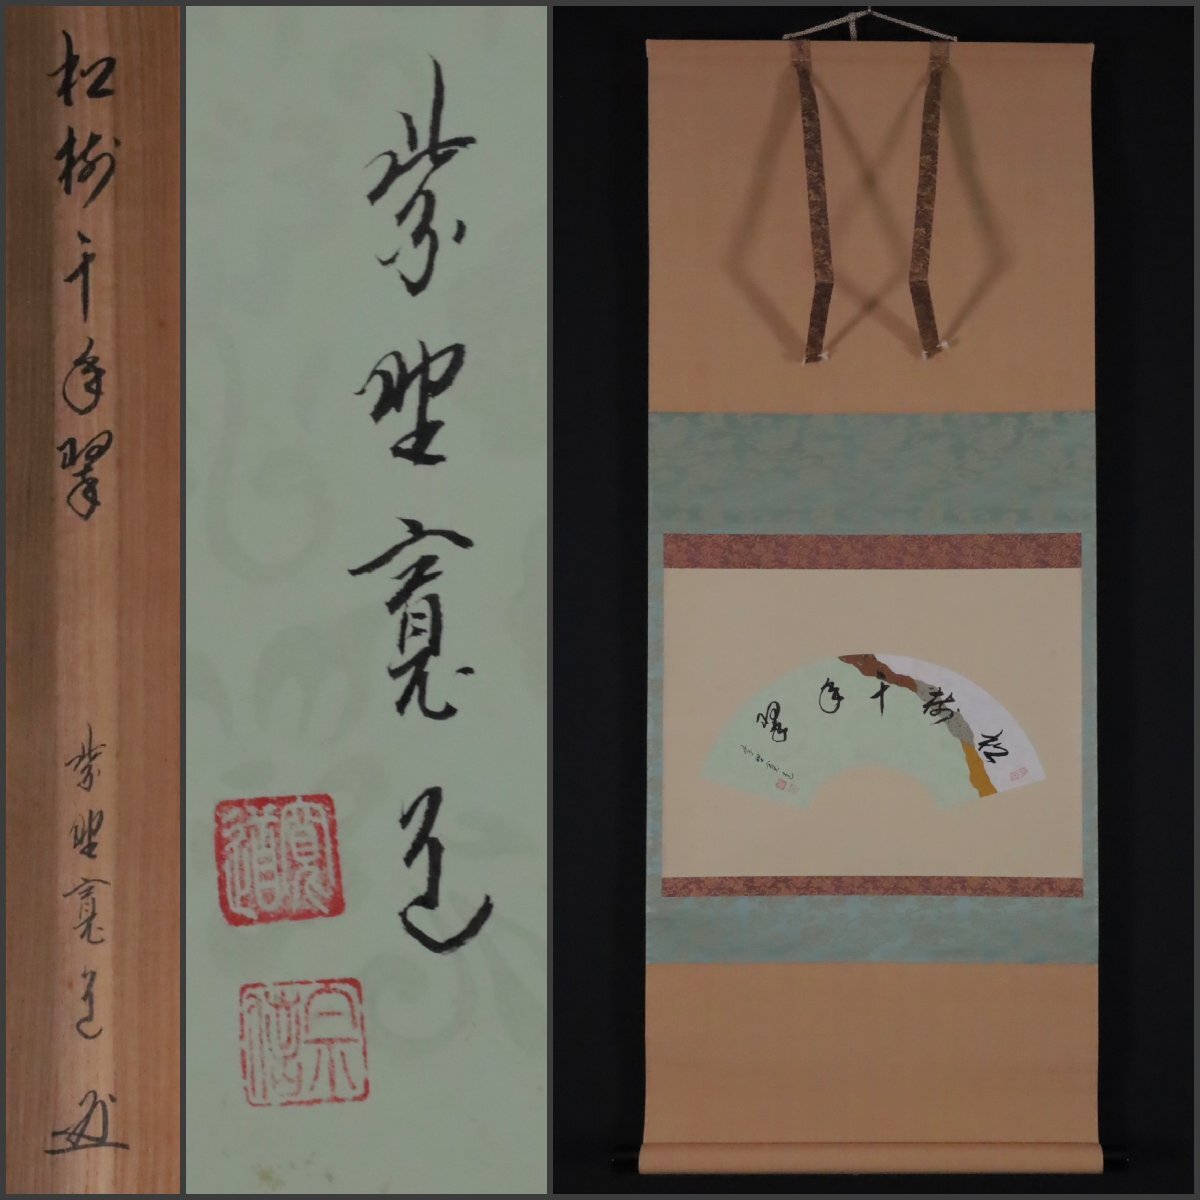 松樹千年翠
紫野寛道
紫野寛道
寛道
宗
松樹千年翠
紫野寛道